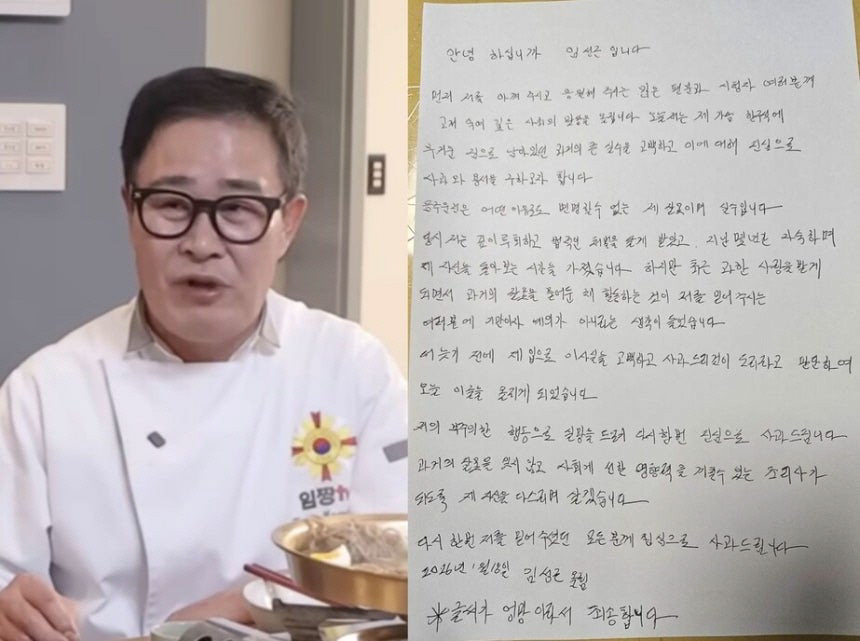 임짱TV
안녕 하십니까 임성근입니다
먼저 저를 아껴 주시고 응원해 주시는 많은 팬분과 시청자 여러분께
고개 숙여 깊은 사죄의 말씀을 드립니다 오늘 저는 제 가슴 한구석에
무거운 짐으로 남아있던 과거의 큰 실수를 고백하고 이에 대해 진심으로
사과와 용서를 구하고자 합니다
음주운전은 어떤 이유로도 변명할수 없는 제 잘못이며 실수입니다
당시 저는 깊이후회하고 법적인 처벌을 달게 받았고, 지난 몇년간 자숙하며
제 자신을 돌아보는 시간을 가졌습니다 하지만 최근 과분한 사랑을 받게
되면서 과거의 잘못을 묻어둔 채 활동하는 것이 저를 믿어 주시는
여러분에 기만이자 예의가 아니라는 생각이 들었습니다
더 늦기 전에 제 입으로 이사실을 고백하고 사과드리는것이 도리라고 판단하여
오늘 이글을 올리게 되었습니다
저의 부주의한 행동으로 실망을 드려 다시한번 진심으로 사과드립니다
과거의 잘못을 잊지 않고 사회에 선한 영향력을 끼칠수 있는 조리사가
되도록 제 자신을 다스리며 살겠습니다
다시 한번 저를 믿어 주셨던 모든분께 진심으로 사과드립니다
2026년 1월 임성근 올림
※글씨가 엉망이라서 죄송합니다